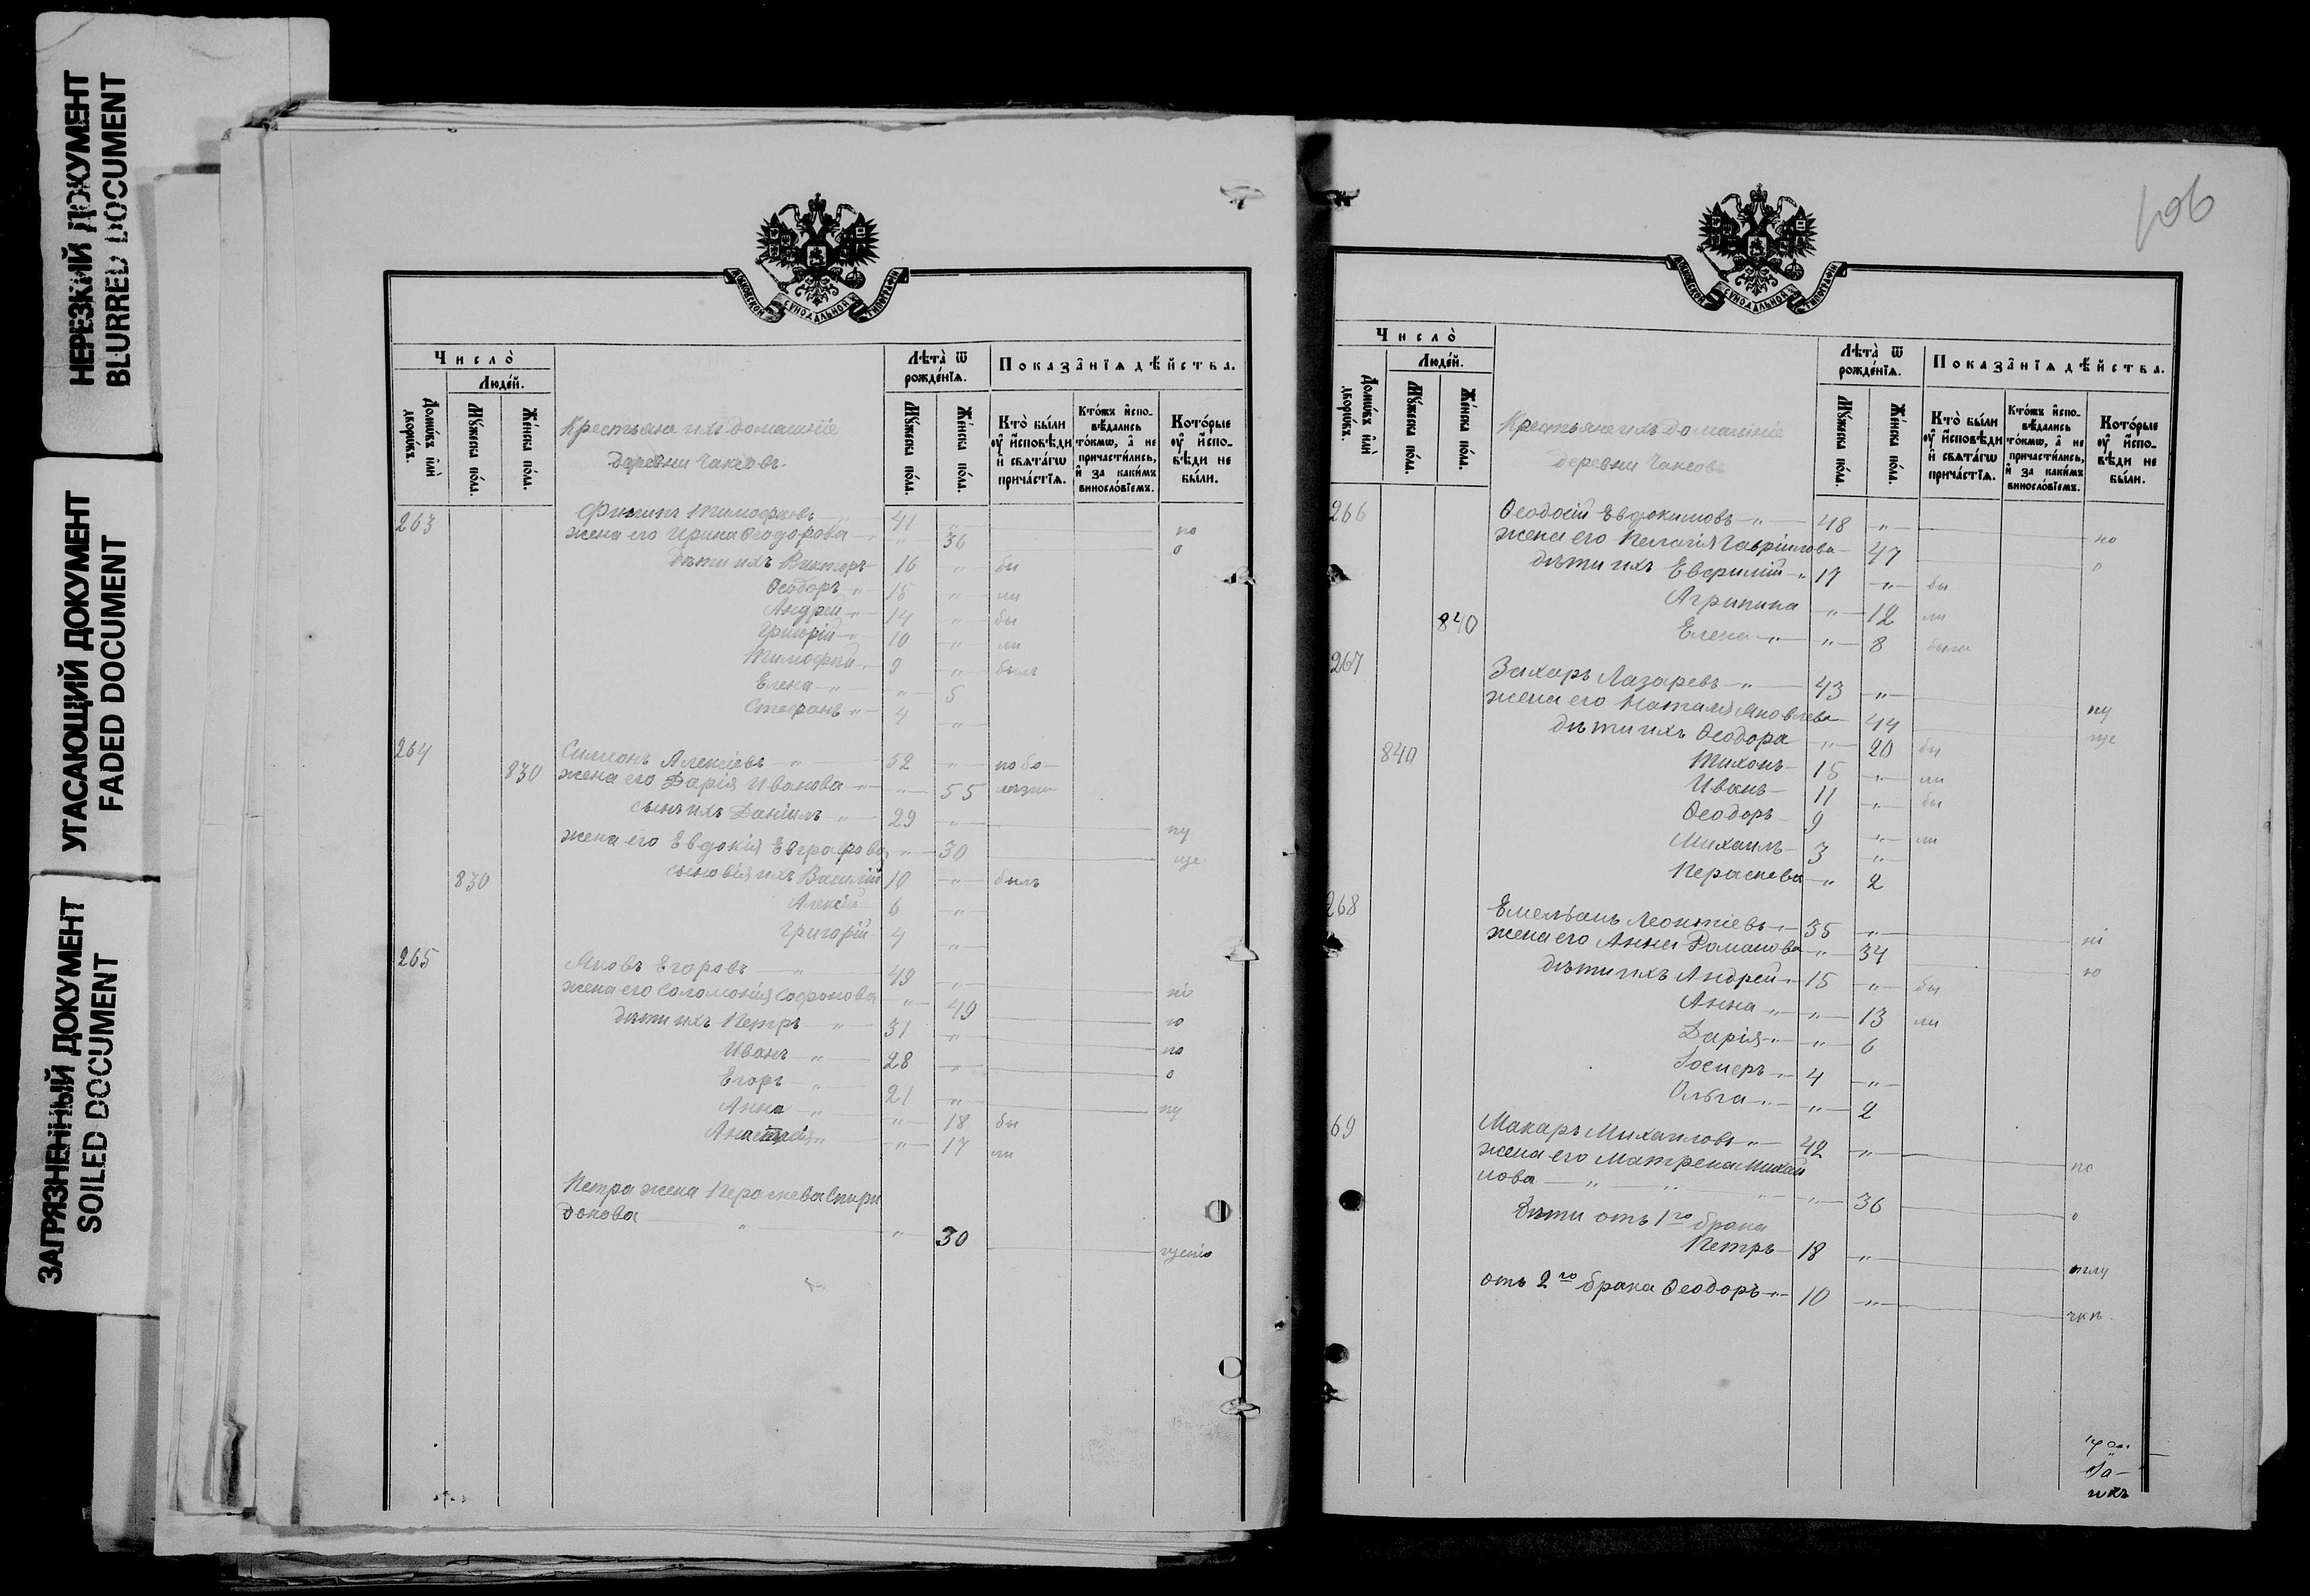 НЕРЕЗКИЙ ДОКУМЕНТ
BLURRED DOCUMENT
УГАСАЮЩИЙ ДОКУМЕНТ
FADED DOCUMENT
ЗАГРЯЗНЕННЫЙ ДОКУМЕНТ
SOILED DOCUMENT
МОСКОВСКОЙ СѴНОДАЛЬНОЙ ТИПОГРАФІИ
Число̀
Люде́й.
Домѡ́въ и҆лѝ дворѡ́въ.
Мꙋ́жеска по́ла.
Же́нска по́ла.
Крестьяне ихъ домашніе
деревни Чаксовъ.
Лѣта̀ ѿ рожде́нїѧ.
Мꙋ́жеска по́ла.
Же́нска по́ла.
Показа̑нїѧ дѣ́йства.
Кто̀ бы́ли оу҆ и҆сповѣ́ди и҆ свѧта́гѡ прича́стїѧ.
Кто́жъ и҆спо-вѣ́дались то́кмѡ, а҆ не причасти́лись, и҆ за каки́мъ винослові́емъ.
Кото́рые оу҆ и҆спо-вѣ́ди не бы́ли.
263 Филипъ Тимофѣевъ 41 " по
жена его Ирина Ѳеодорова " 36 о
дѣти ихъ Викторъ 16 " бы
Ѳеодоръ " 15 " ли
Андрей " 14 " бы
Григорій " 10 " ли
Тимофей " 9 " былъ
Елена " " 5
Стефанъ " 4 "
264 Симеонъ Алексіевъ " 52 " по бо
830 жена его Дарія Иванова " " 55 лѣзни
сынъ ихъ Даніилъ " 29 " пу
жена его Евдокія Евграфова " 30 ще
830 сыновья ихъ Василій 10 " былъ
Алексій 6 "
Григорій 4 "
265 Яковъ Егоровъ " 49 " ні
жена его Соломонія Софонова " 49 ю
дѣти ихъ Петръ " 31 " по
Иванъ " 28 " о
Егоръ " 21 " пу
Анна " " 18 бы
Анастасія " " 17 ли
Петра жена Пераскева Спири
донова " " 30 щенію
106
МОСКОВСКОЙ СѴНОДАЛЬНОЙ ТИПОГРАФІИ
Число̀
Люде́й.
Домѡ́въ и҆лѝ дворѡ́въ.
Мꙋ́жеска по́ла.
Же́нска по́ла.
Крестьяне ихъ домашніе
деревни Чаксовъ
Лѣта̀ ѿ рожде́нїѧ.
Мꙋ́жеска по́ла.
Же́нска по́ла.
Показа̑нїѧ дѣ́йства.
Кто̀ бы́ли оу҆ и҆сповѣ́ди и҆ свѧта́гѡ прича́стїѧ.
Кто́жъ и҆спо-вѣ́дались то́кмѡ, а҆ не причасти́лись, и҆ за каки́мъ винослові́емъ.
Кото́рые оу҆ и҆спо-вѣ́ди не бы́ли.
266 Ѳеодосій Евдокимовъ " 48 " по
жена его Пелагія Гавріилова 47 о
дѣти ихъ Евфимій " 17 " бы
Агрипина " 12 ли
840 Елена " " 8 была
267 Захаръ Лазаревъ " 43 " пу
жена его Наталія Яковлева 44 ще
дѣти ихъ Ѳеодора " 20 бы
840 Тихонъ 15 " ли
Иванъ 11 " бы
Ѳеодоръ 9 " ли
Михаилъ 3 "
Пераскева " 2
268 Емельянъ Леонтіевъ " 35 " ні
жена его Анна Романова " 34 ю
дѣти ихъ Андрей " 15 " бы
Анна " " 13 ли
Дарія " " 6
Іосиеръ " 4 "
Ольга " " 2
69 Макаръ Михаиловъ " 42 " по
жена его Матрена Михаи
лова " " " " 36 о
Дѣти отъ 1го брака
Петръ 18 " тлу
отъ 2го брака Ѳеодоръ " 10 " чкѣ.